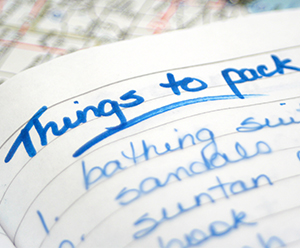 Things to pack
bathing sui
1. sandals
suntan
book